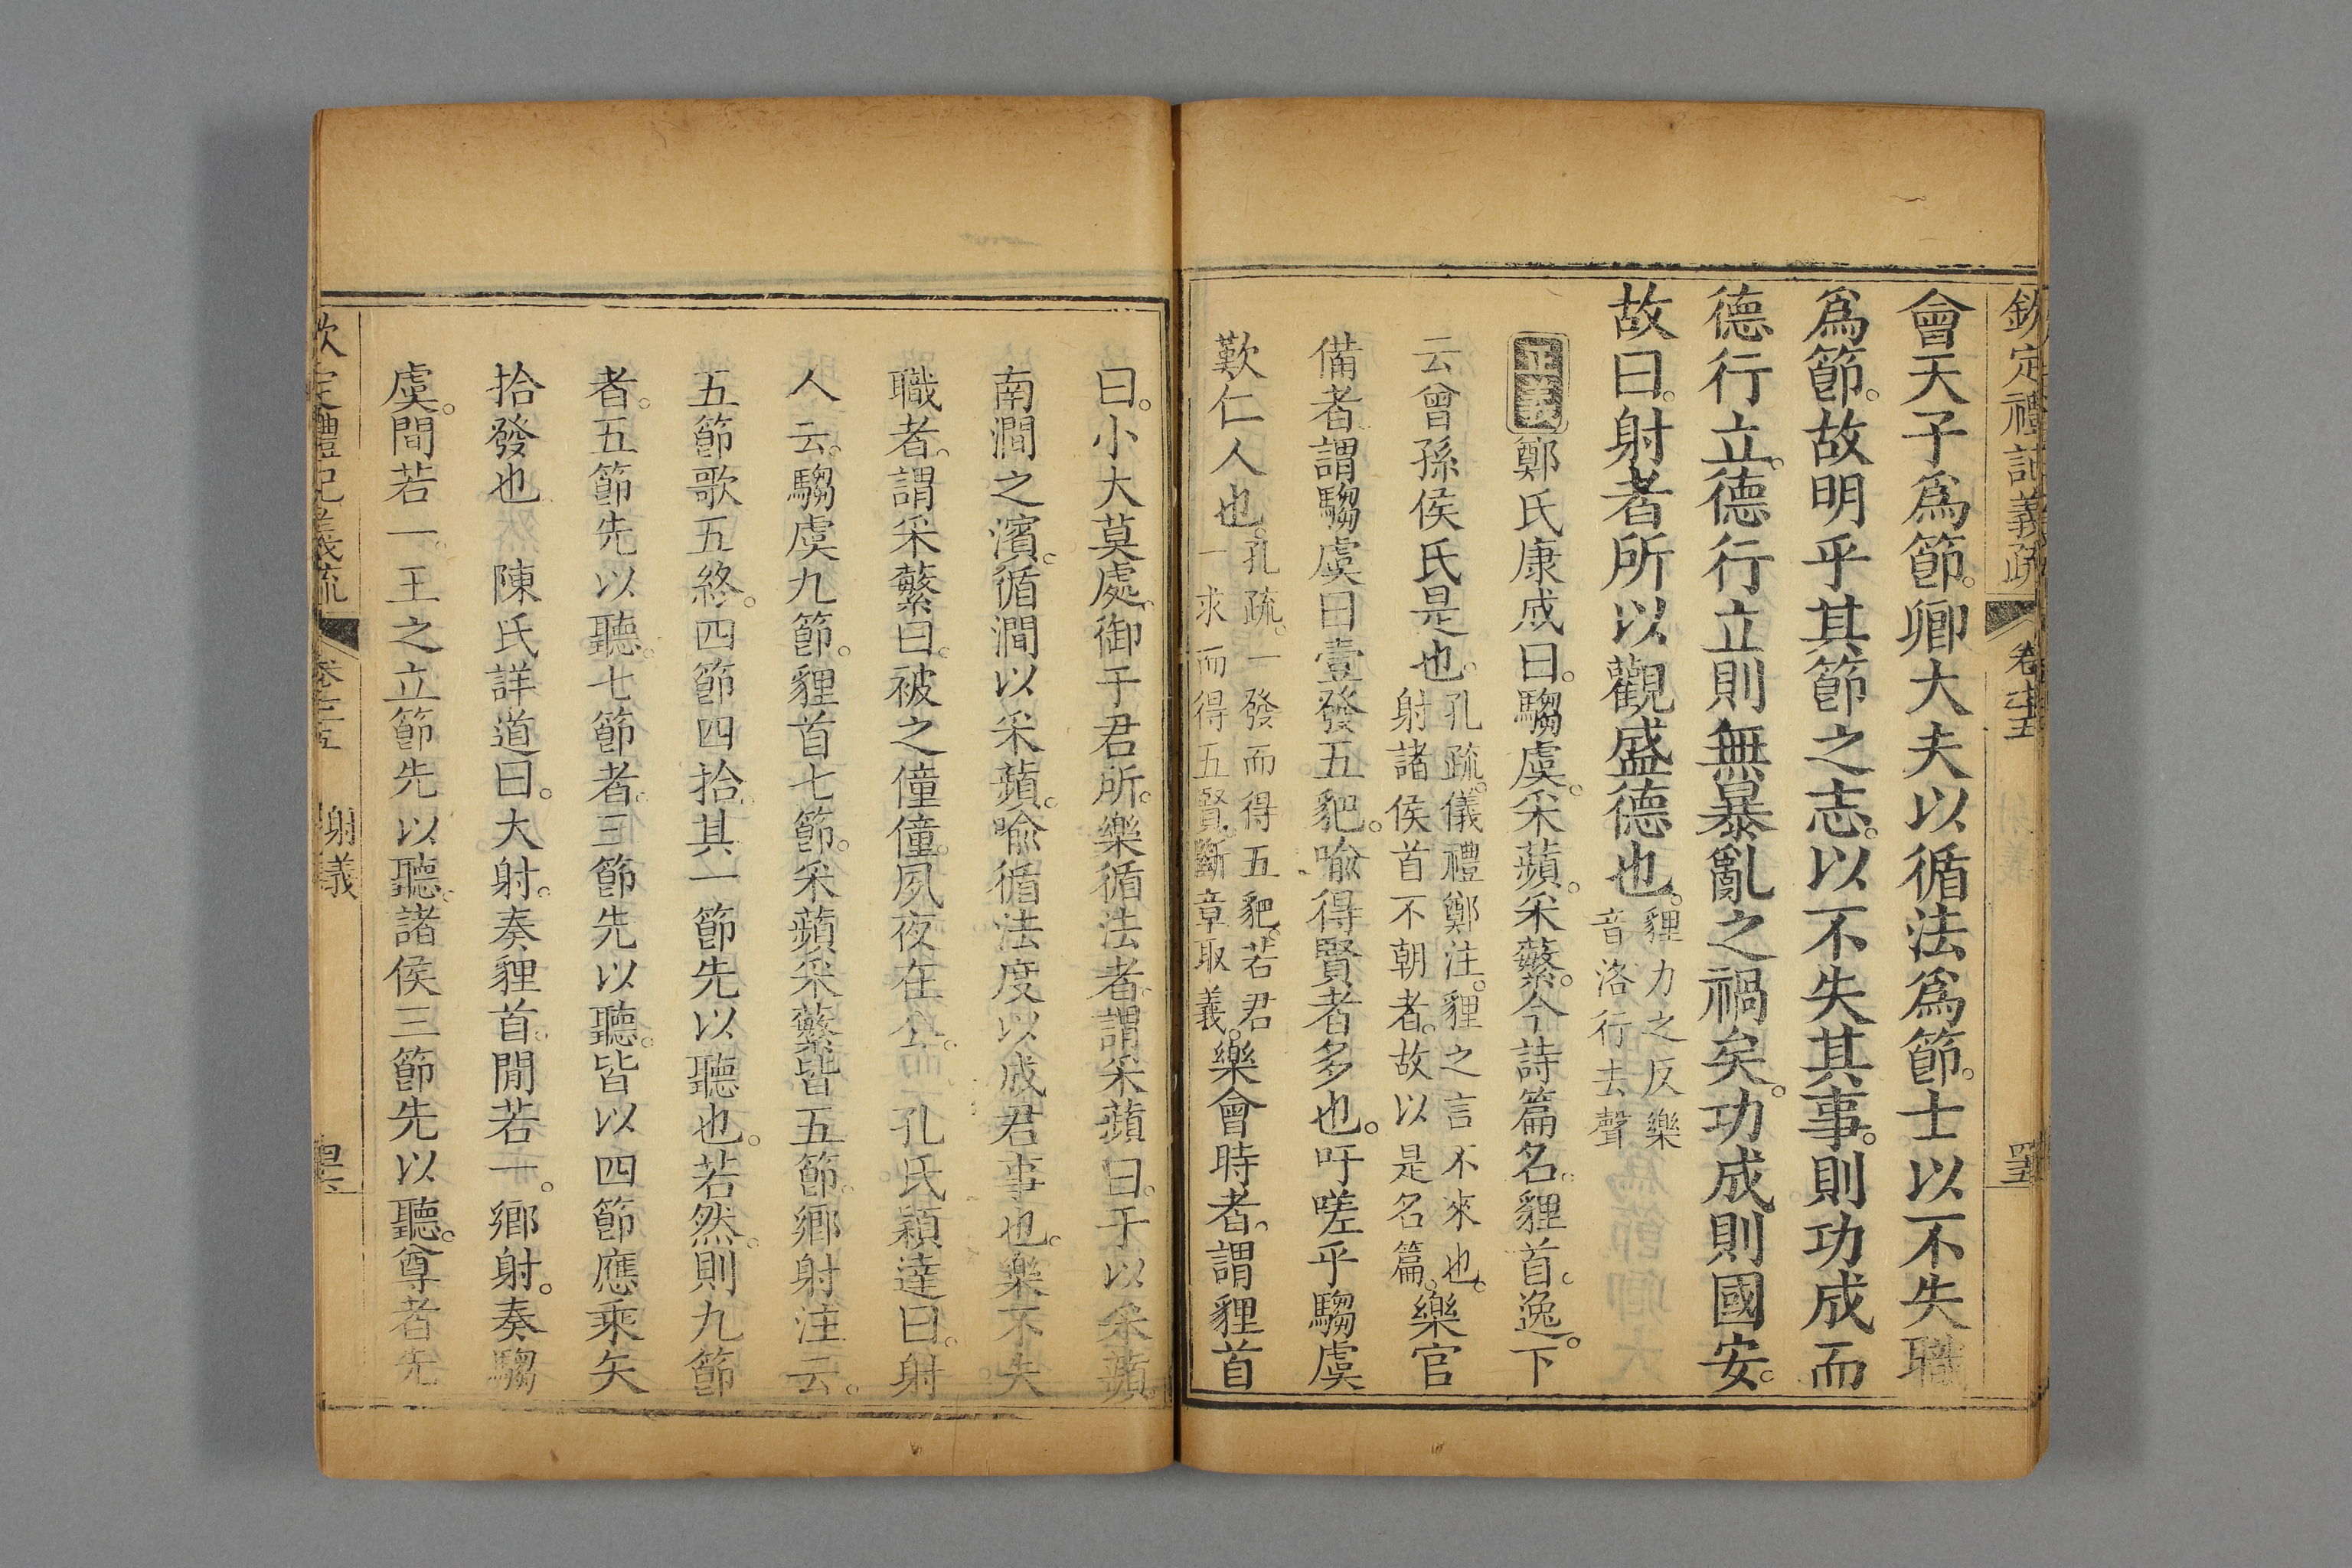 欽定禮記義疏 卷七十五 四十五
會天子爲節。卿大夫以循法爲節。士以不失職
爲節。故明乎其節之志。以不失其事。則功成而
德行立。德行立則無暴亂之禍矣。功成則國安。
故曰。射者所以觀盛德也。貍力之反樂
音洛行去聲
正義鄭氏康成曰。騶虞。采蘋。采蘩。今詩篇名。貍首。逸。下
云曾孫侯氏是也。孔疏。儀禮鄭注。貍之言不來也。
射諸侯首不朝者。故以是名篇。樂官
備者。謂騶虞曰壹發五豝。喻得賢者多也。吁嗟乎騶虞
歎仁人也。孔疏。一發而得五豝。若君
一求而得五賢。斷章取義。樂會時者。謂貍首
曰。小大莫處。御于君所。樂循法者。謂采蘋曰。于以采蘋。
南澗之濱。循澗以采蘋。喻循法度以成君事也。樂不失
職者。謂采蘩曰。被之僮僮。夙夜在公。 孔氏穎達曰。射
人云。騶虞九節。貍首七節。采蘋采蘩皆五節。鄉射注云。
五節歌五終。四節四拾。其一節先以聽也。若然。則九節
者。五節先以聽。七節者。三節先以聽。皆以四節應乘矢
拾發也 陳氏詳道曰。大射。奏貍首。閒若一。鄉射。奏騶
虞。間若一。王之立節先以聽。諸侯三節先以聽。尊者先
欽定禮記義疏 卷七十五 射義